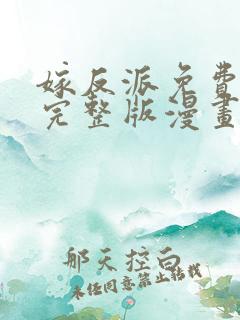 嫁反派免費
完整版漫畫
那天控白
未任同意禁止转载